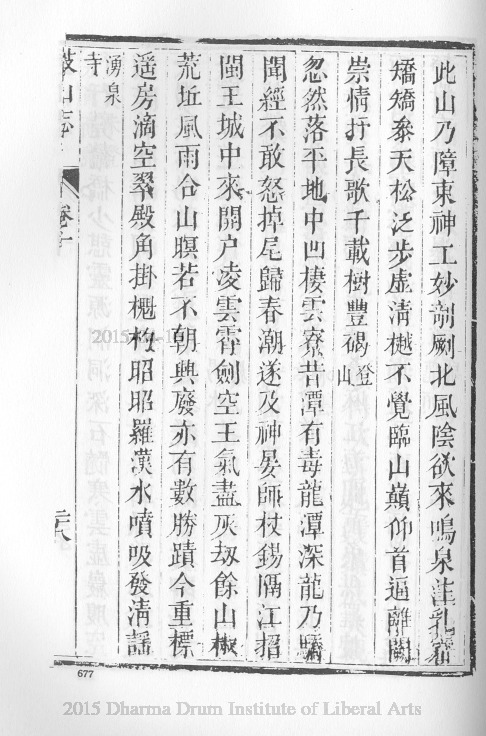 此山乃障東神工妙剬劂北風陰欲來鳴泉洼乳竅
矯矯叅天松泛步虛淸樾不覺臨山巔仰首逼離闕
崇情抒長歌千載樹豐碣登山
忽然落平地中凹棲雲寮昔潭有毒龍潭深龍乃驕
聞經不敢怒掉尾歸春潮遂及神晏師杖錫隔江招
閩王城中來開户凌雲霄劍空王氣盡灰刼餘山椒
荒址風雨合山暝若不朝興廢亦有數勝蹟今重標
遥房滴空翠殿角掛櫆杓昭昭羅漢水噴吸發淸謡
湧泉寺
鼓山志 卷十
二八
677
2015 Dharma Drum Institute of Liberal Arts